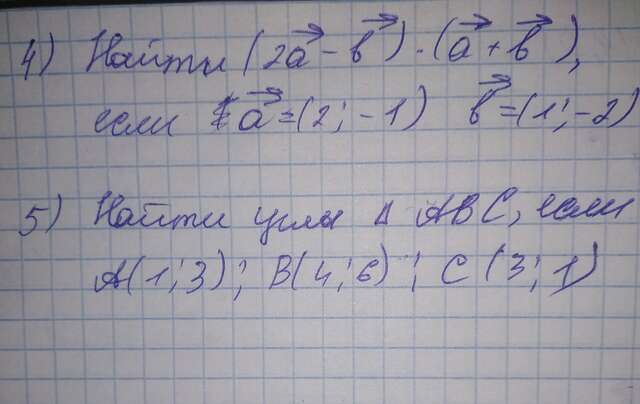 4) Найти (2a⃗ - b⃗) · (a⃗ + b⃗),
если a⃗ = (2; -1) b⃗ = (1; -2)
5) Найти углы Δ ABC, если
A(1; 3); B(4; 6); C(3; 1)